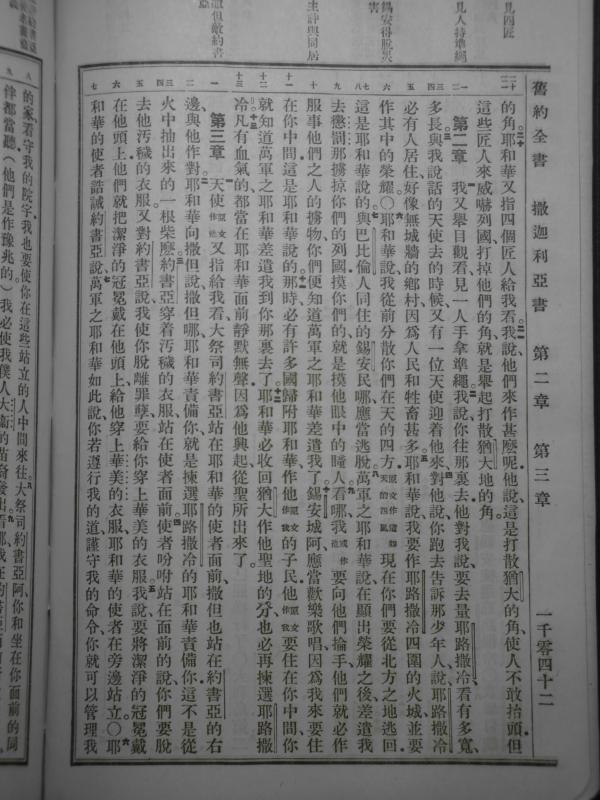 舊約全書 撒迦利亞書 第二章 第三章 一千零四十二
的角耶和華又指四個匠人給我看我說他們來作甚麽呢他說這是打散猶大的角使人不敢抬頭但
這些匠人來威嚇列國打掉他們的角就是舉起打散猶大地的角
第二章 我又舉目觀看見一人手拿準繩我說你往那裏去他對我說要去量耶路撒冷看有多寬
多長與我說話的天使去的時候又有一位天使迎着他來對他說你跑去告訴那少年人說耶路撒冷
必有人居住好像無城牆的鄉村因爲人民和牲畜甚多耶和華說我要作耶路撒冷四圍的火城並要
作其中的榮耀〇耶和華說我從前分散你們在天的四方現在你們要從北方之地逃回
這是耶和華說的與巴比倫人同住的錫安民哪應當逃脫萬軍之耶和華說在顯出榮耀之後差遣我
去懲罰那擄掠你們的列國摸你們的就是摸他眼中的瞳人看哪我要向他們掄手他們就必作
服事他們之人的擄物你們便知道萬軍之耶和華差遣我了錫安城阿應當歡樂歌唱因爲我來要住
在你中間這是耶和華說的那時必有許多國歸附耶和華作他的子民他要住在你中間你
就知道萬軍之耶和華差遣我到你那裏去了耶和華必收回猶大作他聖地的分也必再揀選耶路撒
冷凡有血氣的都當在耶和華面前靜默無聲因爲他興起從聖所出來了
第三章 天使又指給我看大祭司約書亞站在耶和華的使者面前撒但也站在約書亞的右
邊與他作對耶和華向撒但說撒但哪耶和華責備你就是揀選耶路撒冷的耶和華責備你這不是從
火中抽出來的一根柴麽約書亞穿着汚穢的衣服站在使者面前使者吩咐站在面前的說你們要脫
去他汚穢的衣服又對約書亞說我使你脫離罪孽要給你穿上華美的衣服我說要將潔淨的冠冕戴
在他頭上他們就把潔淨的冠冕戴在他頭上給他穿上華美的衣服耶和華的使者在旁邊站立〇耶
和華的使者誥誡約書亞說萬軍之耶和華如此說你若遵行我的道謹守我的命令你就可以管理我
的家看守我的院宇我也要使你在這些站立的人中間來往大祭司約書亞阿你和坐在你面前的同
伴都當聽（他們是作豫兆的）我必使我僕人大衛的苗裔發出